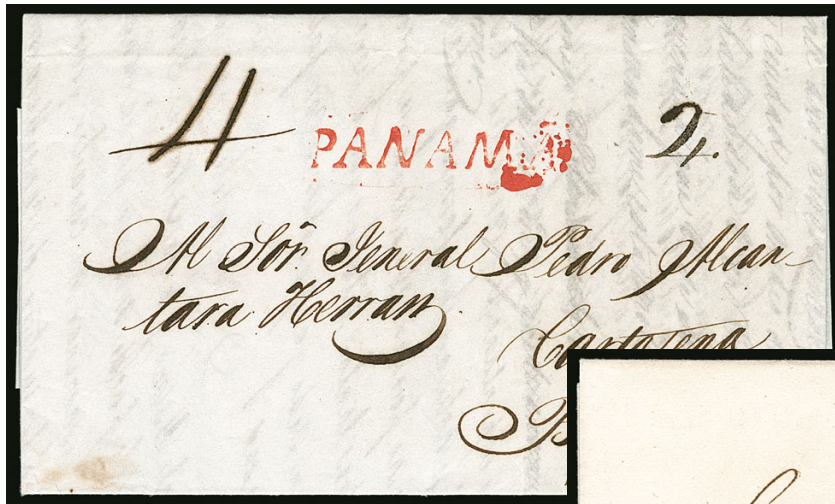 4 PANAMA 2.
Al Sôr. Jeneral Pedro Alcan-
tara Herran.
Cartajena